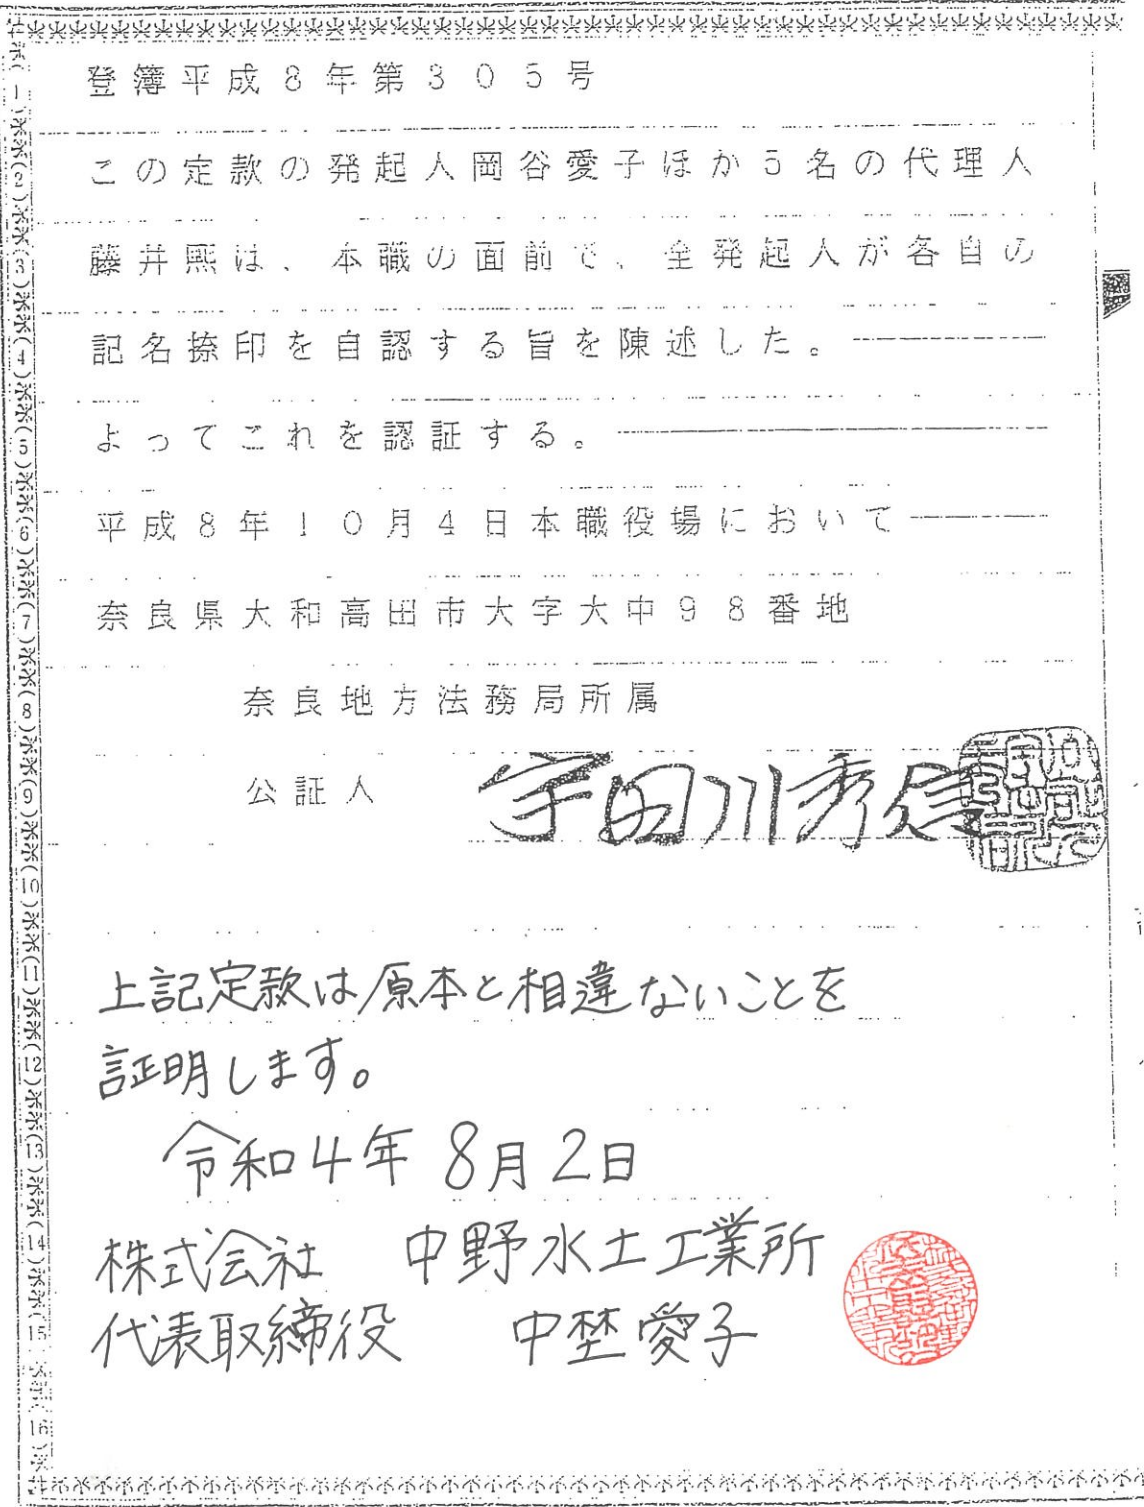 登簿平成8年第305号
この定款の発起人岡谷愛子ほか5名の代理人
藤井熙は、本職の面前で、全発起人が各自の
記名捺印を自認する旨を陳述した。
よってこれを認証する。
平成8年10月4日本職役場において
奈良県大和高田市大字大中98番地
奈良地方法務局所属
公証人 宇田川秀信
上記定款は原本と相違ないことを
証明します。
令和4年8月2日
株式会社 中野水土工業所
代表取締役 中埜愛子